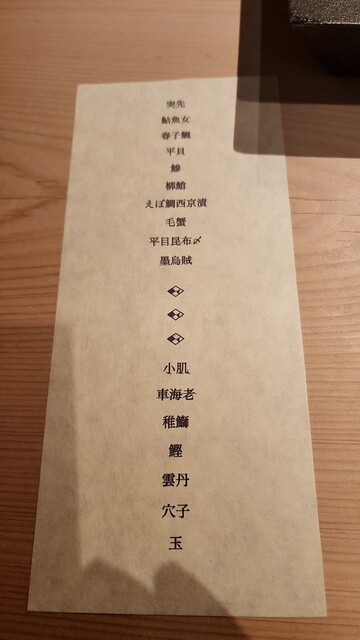 突先
鮎魚女
春子鯛
平貝
鰺
柳鮹
えぼ鯛西京漬
毛蟹
平目昆布〆
墨烏賊
小肌
車海老
稚鰤
鰹
雲丹
穴子
玉